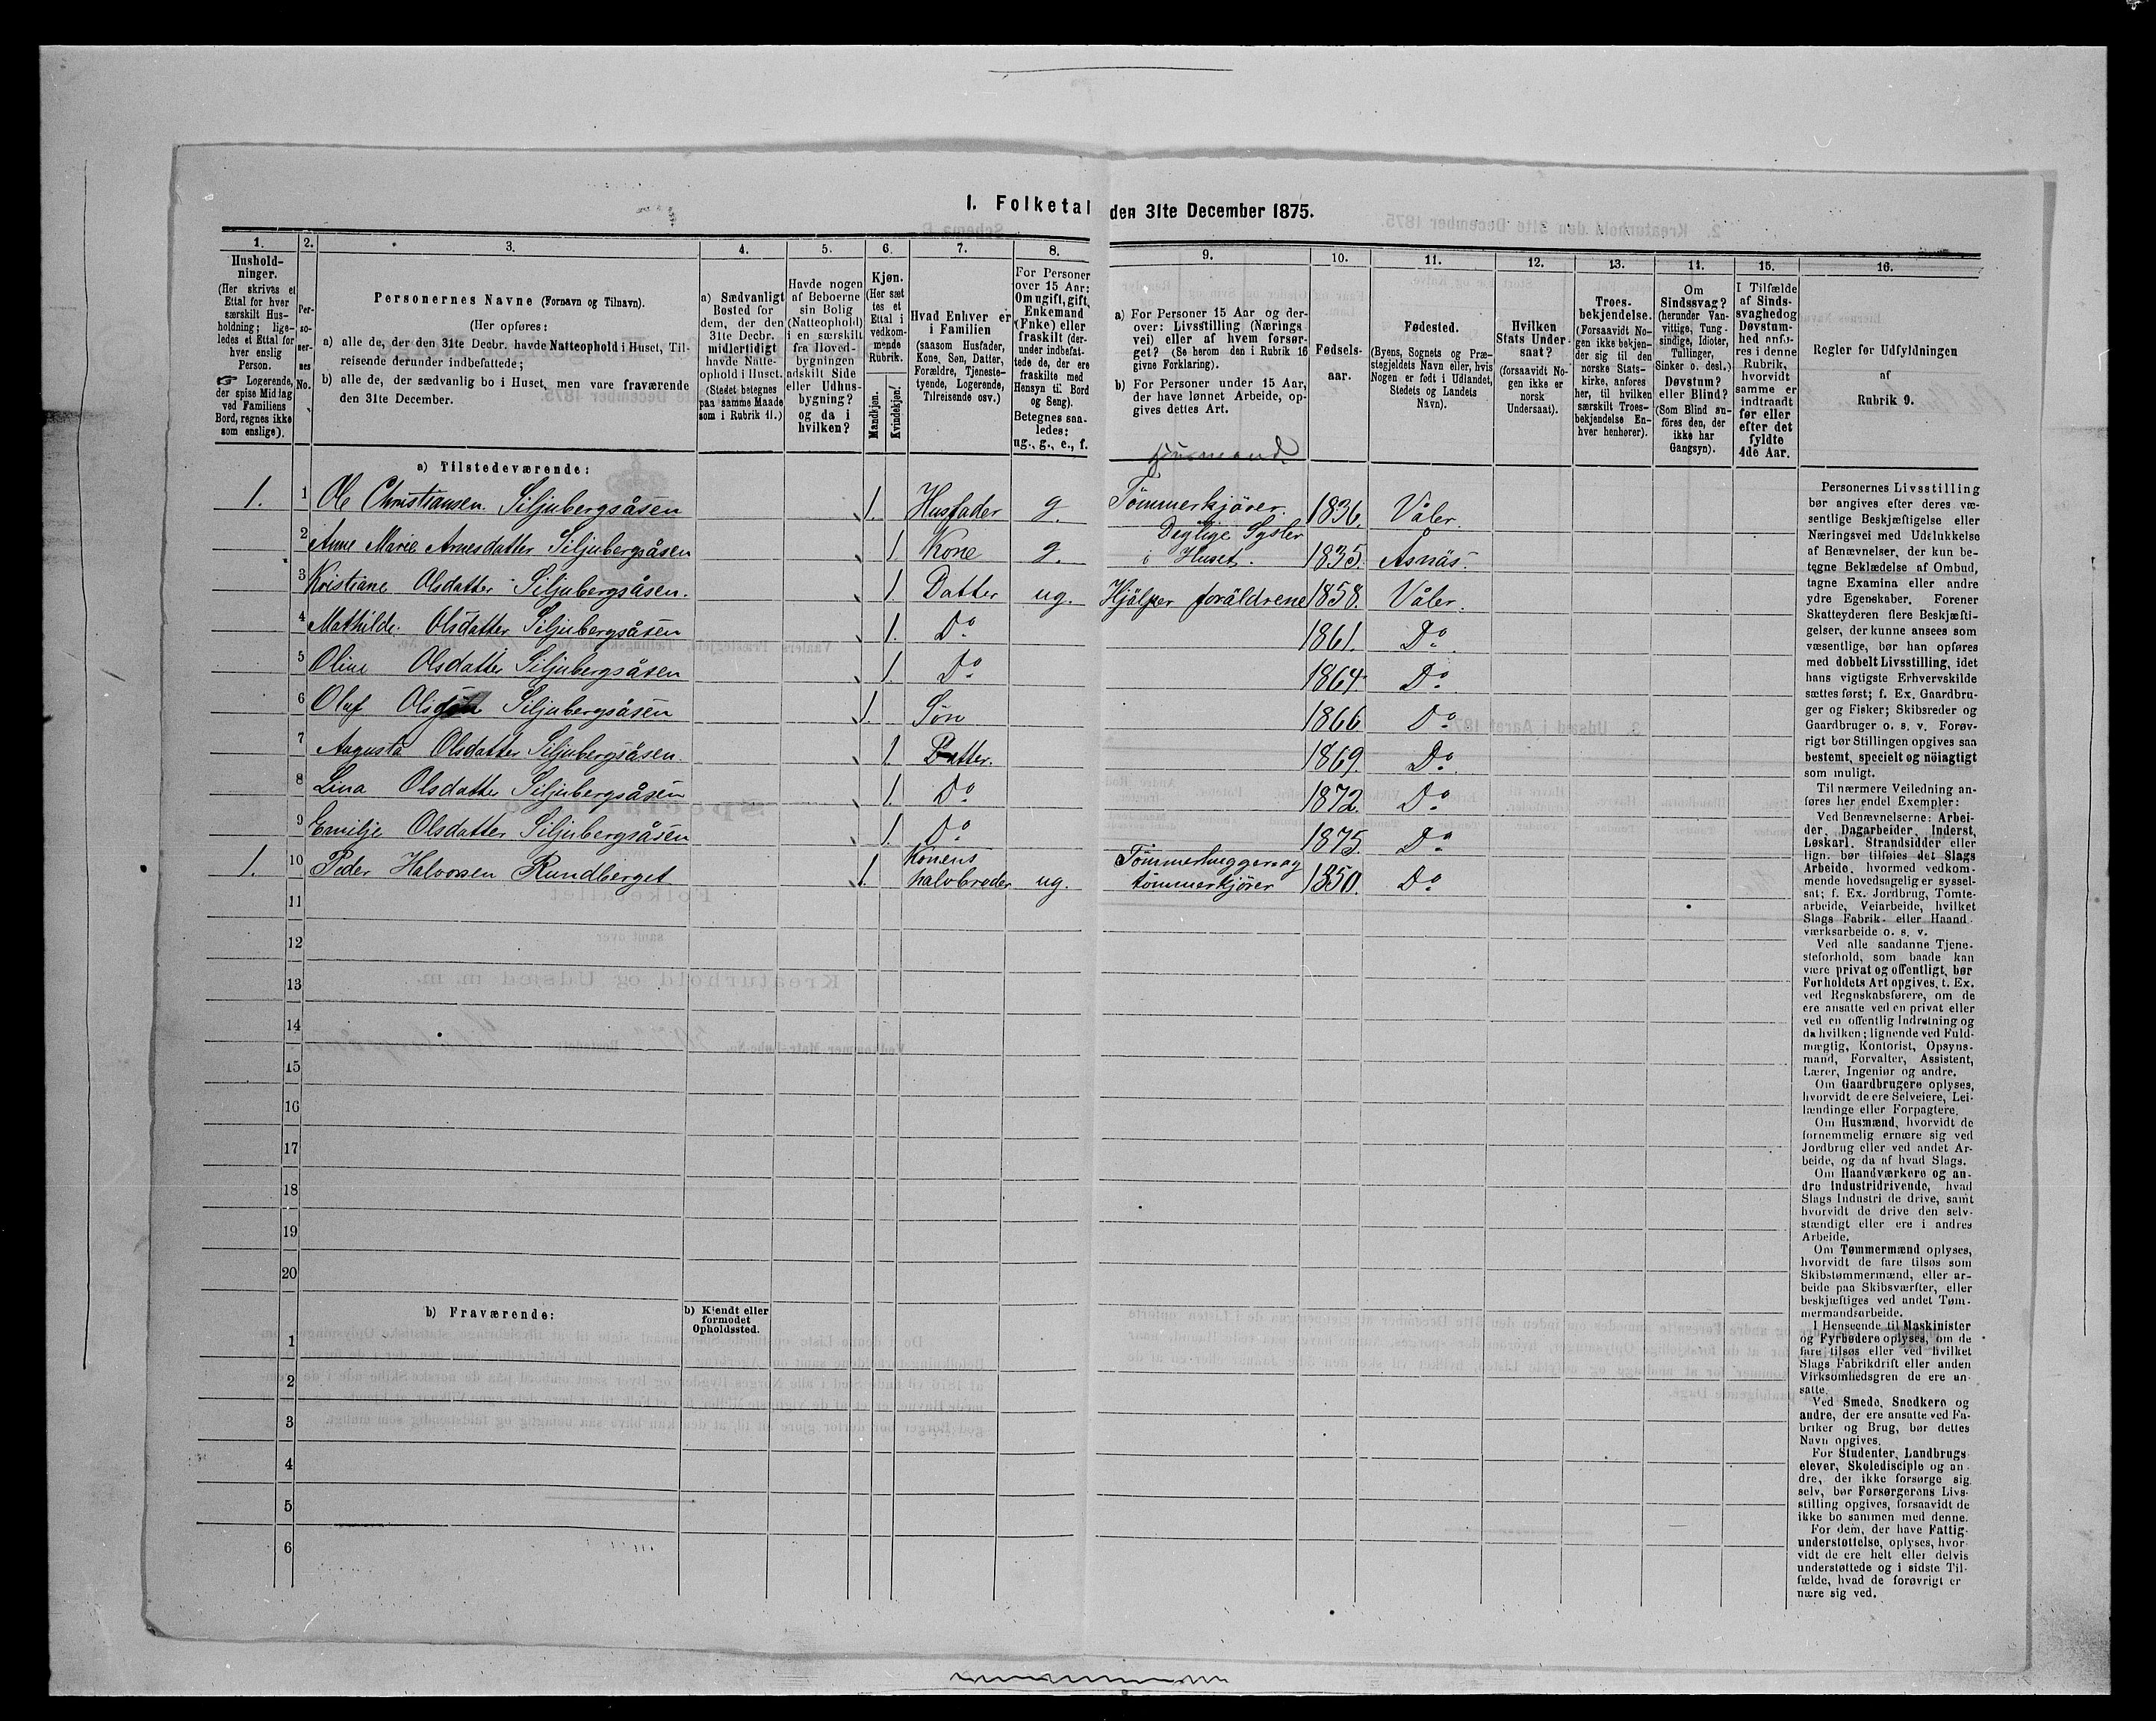 I. Folketal den 31te December 1875.
1. 2. 3. 4. 5. 6. 7. 8. 9. 10. 11. 12. 13. 14. 15. 16.
Hushold-
ninger.
(Her skrives et
Ettal for hver
særskilt Hus-
holdning; lige-
ledes et Ettal for
hver enslig
Person.
☞ Logerende,
der spise Middag
ved Familiens
Bord, regnes ikke
som enslige).
Per-
so-
ner-
nes
No.
Personernes Navne (Fornavn og Tilnavn).
(Her opføres:
a) alle de, der den 31te Decbr. havde Natteophold i Huset, Til-
reisende derunder indbefattede;
b) alle de, der sædvanlig bo i Huset, men vare fraværende
den 31te December.
a) Sædvanligt
Bosted for
dem, der den
31te Decbr.
midlertidigt
havde Natte-
ophold i Huset.
(Stedet betegnes
paa samme Maade
som i Rubrik 11.)
Havde nogen
af Beboerne
sin Bolig
(Natteophold)
i en særskilt
fra Hoved-
bygningen
adskilt Side
eller Udhus-
bygning?
og da i
hvilken?
Kjøn.
(Her sæt
tes et
Ettal i
vedkom-
mende
Rubrik.
Mandkjøn.
Kvindekjøn.
Hvad Enhver er
i Familien
(saasom Husfader,
Kone, Søn, Datter,
Forældre, Tjeneste-
tyende, Logerende,
Tilreisende osv.)
For Personer
over 15 Aar:
Om ugift, gift,
Enkemand
(Enke) eller
fraskilt (der-
under indbefat-
tede de, der ere
fraskilte med
Hensyn til Bord
og Seng).
Betegnes saa-
ledes:
ug., g., e., f.
a) For Personer 15 Aar og der-
over: Livsstilling (Nærings
vei) eller af hvem forsør-
get? (Se herom den i Rubrik 16
givne Forklaring).
b) For Personer under 15 Aar,
der have lønnet Arbeide, op-
gives dettes Art.
Fødsels-
aar.
Fødested.
(Byens, Sognets og Præ-
stegjeldets Navn eller, hvis
Nogen er født i Udlandet,
Stedets og Landets
Navn).
Hvilken
Stats Under-
saat?
(forsaavidt No-
gen ikke er
norsk
Undersaat).
Troes-
bekjendelse.
(Forsaavidt No-
gen ikke bekjen-
der sig til den
norske Stats-
kirke, anføres
her, til hvilken
særskilt Troes-
bekjendelse En-
hver henhører).
Om
Sindssvag?
(herunder Van-
vittige, Tung-
sindige, Idioter,
Tullinger,
Sinker o. desl.)
Døvstum?
eller Blind?
(Som Blind an-
føres den, der
ikke har
Gangsyn).
I Tilfælde
af Sinds-
svaghed og
Døvstum-
hed anfø-
res i denne
Rubrik,
hvorvidt
samme er
indtraadt
før eller
efter det
fyldte
4de Aar.
Regler for Udfyldningen
af
Rubrik 9.
a) Tilstedeværende:
1. 1 Ole Christiansen. Siljubergsåsen 1. Husfader g. Tømmerkjører. 1836. Våler.
2 Anne Marie Arnesdatter Siljubergsåsen 1. Kone g. Deglige Sysler i Huset. 1835. Asnäs.
3 Kristiane Olsdatter Siljubergsåsen. 1. Datter ug. Hjälper foräldrene 1858. Våler.
4 Mathilde Olsdatter Siljubergsåsen 1. Do 1861. Do
5 Oline Olsdatter Siljubergsåsen 1. Do 1864. Do
6 Oluf Siljubergsåsen 1. Søn 1866 Do
7 Augusta Olsdatter Siljubergsåsen 1. Datter. 1869. Do
8 Lina Olsdatter Siljubergsåsen 1. Do 1872. Do
9 Emilje Olsdatter Siljubergsåsen 1. Do 1875. Do
1. 10 Peder Halvorsen Rundberget 1. Konens halvbroder ug. Tømmerhugger og tømmerkjører 1850. Do
11
12
13
14
15
16
17
18
19
20
b) Fraværende:
b) Kjendt eller
formodet
Opholdssted.
1
2
3
4
5
6
Personernes Livsstilling
bør angives efter deres væ-
sentlige Beskjæftigelse eller
Næringsvei med Udelukkelse
af Benævnelser, der kun be-
tegne Beklædelse af Ombud,
tagne Examina eller andre
ydre Egenskaber. Forener
Skatteyderen flere Beskjæfti-
gelser, der kunne ansees som
væsentlige, bør han opføres
med dobbelt Livsstilling, idet
hans vigtigste Erhvervskilde
sættes først; f. Ex. Gaardbru-
ger og Fisker; Skibsreder og
Gaardbruger o. s. v. Forøv-
rigt bør Stillingen opgives saa
bestemt, specielt og nöiagtigt
som muligt.
Til nærmere Veiledning an-
føres her endel Exempler:
Ved Benævnelserne: Arbei-
der, Dagarbeider, Inderst,
Løskarl, Strandsidder eller
lign. bør tilføies det Slags
Arbeide, hvormed vedkom-
mende hovedsagelig er syssel-
sat; f. Ex. Jordbrug, Tomte-
arbeide, Veiarbeide, hvilket
Slags Fabrik- eller Haand-
værksarbeide o. s. v.
Ved alle saadanne Tjene-
steforhold, som baade kan
være privat og offentligt, bør
Forholdets Art opgives, t. Ex.
ved Regnskabsførere, om de
ere ansatte ved en privat eller
ved en offentlig Indretning og
da hvilken; lignende ved Fuld-
mægtig, Kontorist, Opsyns-
mand, Forvalter, Assistent,
Lærer, Ingeniør og andre.
Om Gaardbrugere oplyses,
hvorvidt de ere Selveiere, Lei-
lændinge eller Forpagtere.
Om Husmænd, hvorvidt de
fornemmelig ernære sig ved
Jordbrug eller ved andet Ar-
beide, og da af hvad Slags.
Om Haandværkere og an-
dre industridrivende, hvad
Slags Industri de drive, samt
hvorvidt de drive den selv-
stændigt eller ere i andres
Arbeide.
Om Tømmermænd oplyses,
hvorvidt de fare tilsøs som
Skibstømmermænd, eller ar-
beide paa Skibsværfter, eller
beskjæftiges ved andet Tøm-
mermandsarbeide.
I Henseende til Maskinister
og Fyrbødere oplyses, om de
fare tilsøs eller ved hvilket
Slags Fabrikdrift eller anden
Virksomhedsgren de ere an-
satte.
Ved Smede, Snedkere og
andre, der ere ansatte ved Fa-
briker og Brug, bør dettes
Navn opgives.
For Studenter, Landbrugs-
elever, Skoledisciple og an-
dre, der ikke forsørge sig
selv, bør Forsørgerens Livs-
stilling opgives, forsaavidt de
ikke bo sammen med denne.
For dem, der have Fattig-
understøttelse, oplyses, hvor-
vidt de ere helt eller delvis
understøttede og i sidste Til-
fælde, hvad de forøvrigt er
nære sig ved.